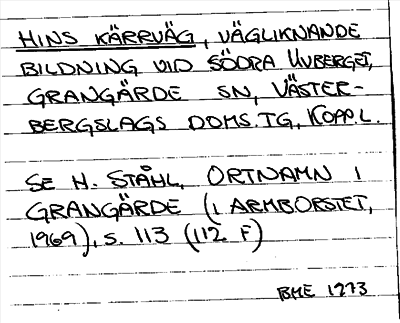 HINS KÄRRVÄG, VÄGLIKNANDE
BILDNING VID SÖDRA UVBERGET,
GRANGÄRDE SN, VÄSTER-
BERGSLAGS DOMS.TG, KOPP.L.
SE H. STÅHL, ORTNAMN I
GRANGÄRDE (I ARMBORSTET,
1969), S. 113 (112 F)
BME 1273